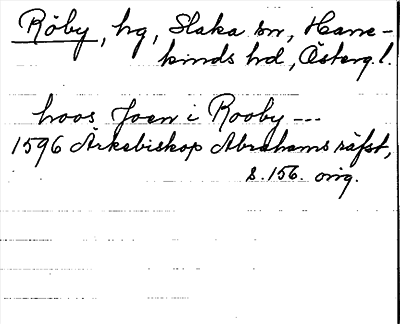 Röby, hg, Slaka sn, Hane-
kinds hd, Österg. l.
hoos Joen i Rooby ---
1596 Ärkebiskop Abrahams räfst,
s. 156. orig.